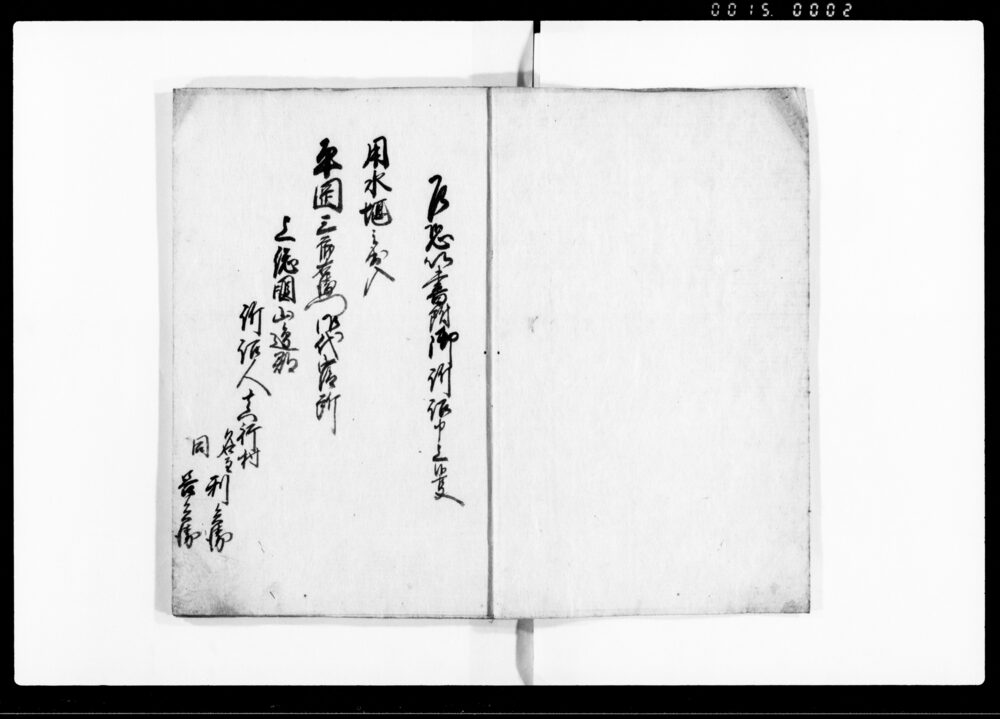 0015. 0002
乍恐以書附御訴訟申上候
用水堰之出入
平岡三郎右衛門御代官所
上総国山辺郡
訴訟人真行村
名主 利兵衛
同 善兵衛